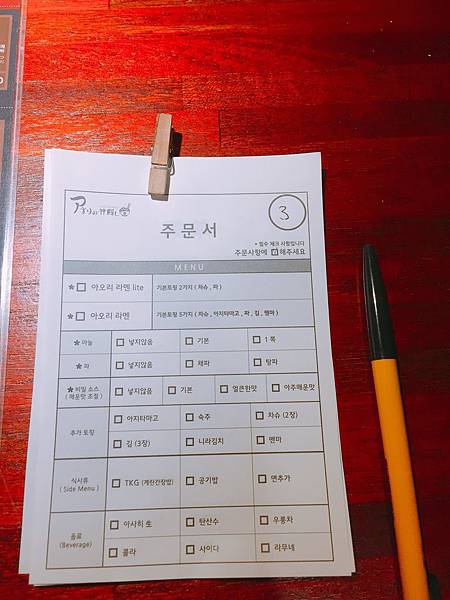 アオリの神隠し
3
주문서
* 필수 체크 사항입니다
주문사항에 ☑해주세요
MENU
★ □ 아오리 라멘 lite 기본토핑 2가지 ( 차슈 , 파 )
★ □ 아오리 라멘 기본토핑 5가지 ( 차슈 , 아지타마고 , 파 , 김 , 멘마 )
★ 마늘 □ 넣지않음 □ 기본 □ 1 쪽
★ 파 □ 넣지않음 □ 채파 □ 탕파
★ 비밀 소스 □ 넣지않음 □ 기본 □ 얼큰한맛 □ 아주매운맛
( 매운맛 조절 )
추가 토핑 □ 아지타마고 □ 숙주 □ 차슈 (2장)
□ 김 (3장) □ 니라김치 □ 멘마
식사류 □ TKG (계란간장밥) □ 공기밥 □ 면추가
( Side Menu )
음료 □ 아사히 生 □ 탄산수 □ 우롱차
(Beverage) □ 콜라 □ 사이다 □ 라무네